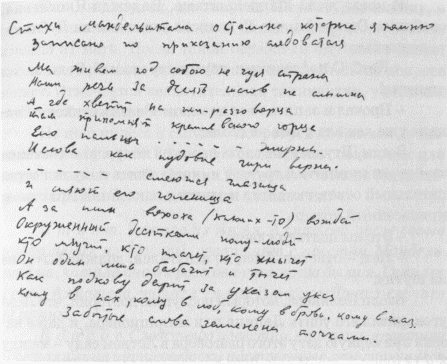 Стихи Мандельштама о Сталине которые я помню
записано по приказанию следователя
Мы живем под собою не чуя страны
Наши речи за десять шагов не слышны
А где хватит на пол-разговорца
там припомнят кремлевского горца
Его пальцы ..... жирны
И слова как пудовые гири верны.
..... смеются глазища
и сияют его голенища
А за ним (каких-то) вождей
Окруженный десятками полу-людей
кто мяучит, кто плачет, кто хнычет
Он один лишь бабачит и тычет
Как подкову дарит за указом указ
кому в пах, кому в лоб, кому в бровь, кому в глаз.
Забытые слова заменены точками.